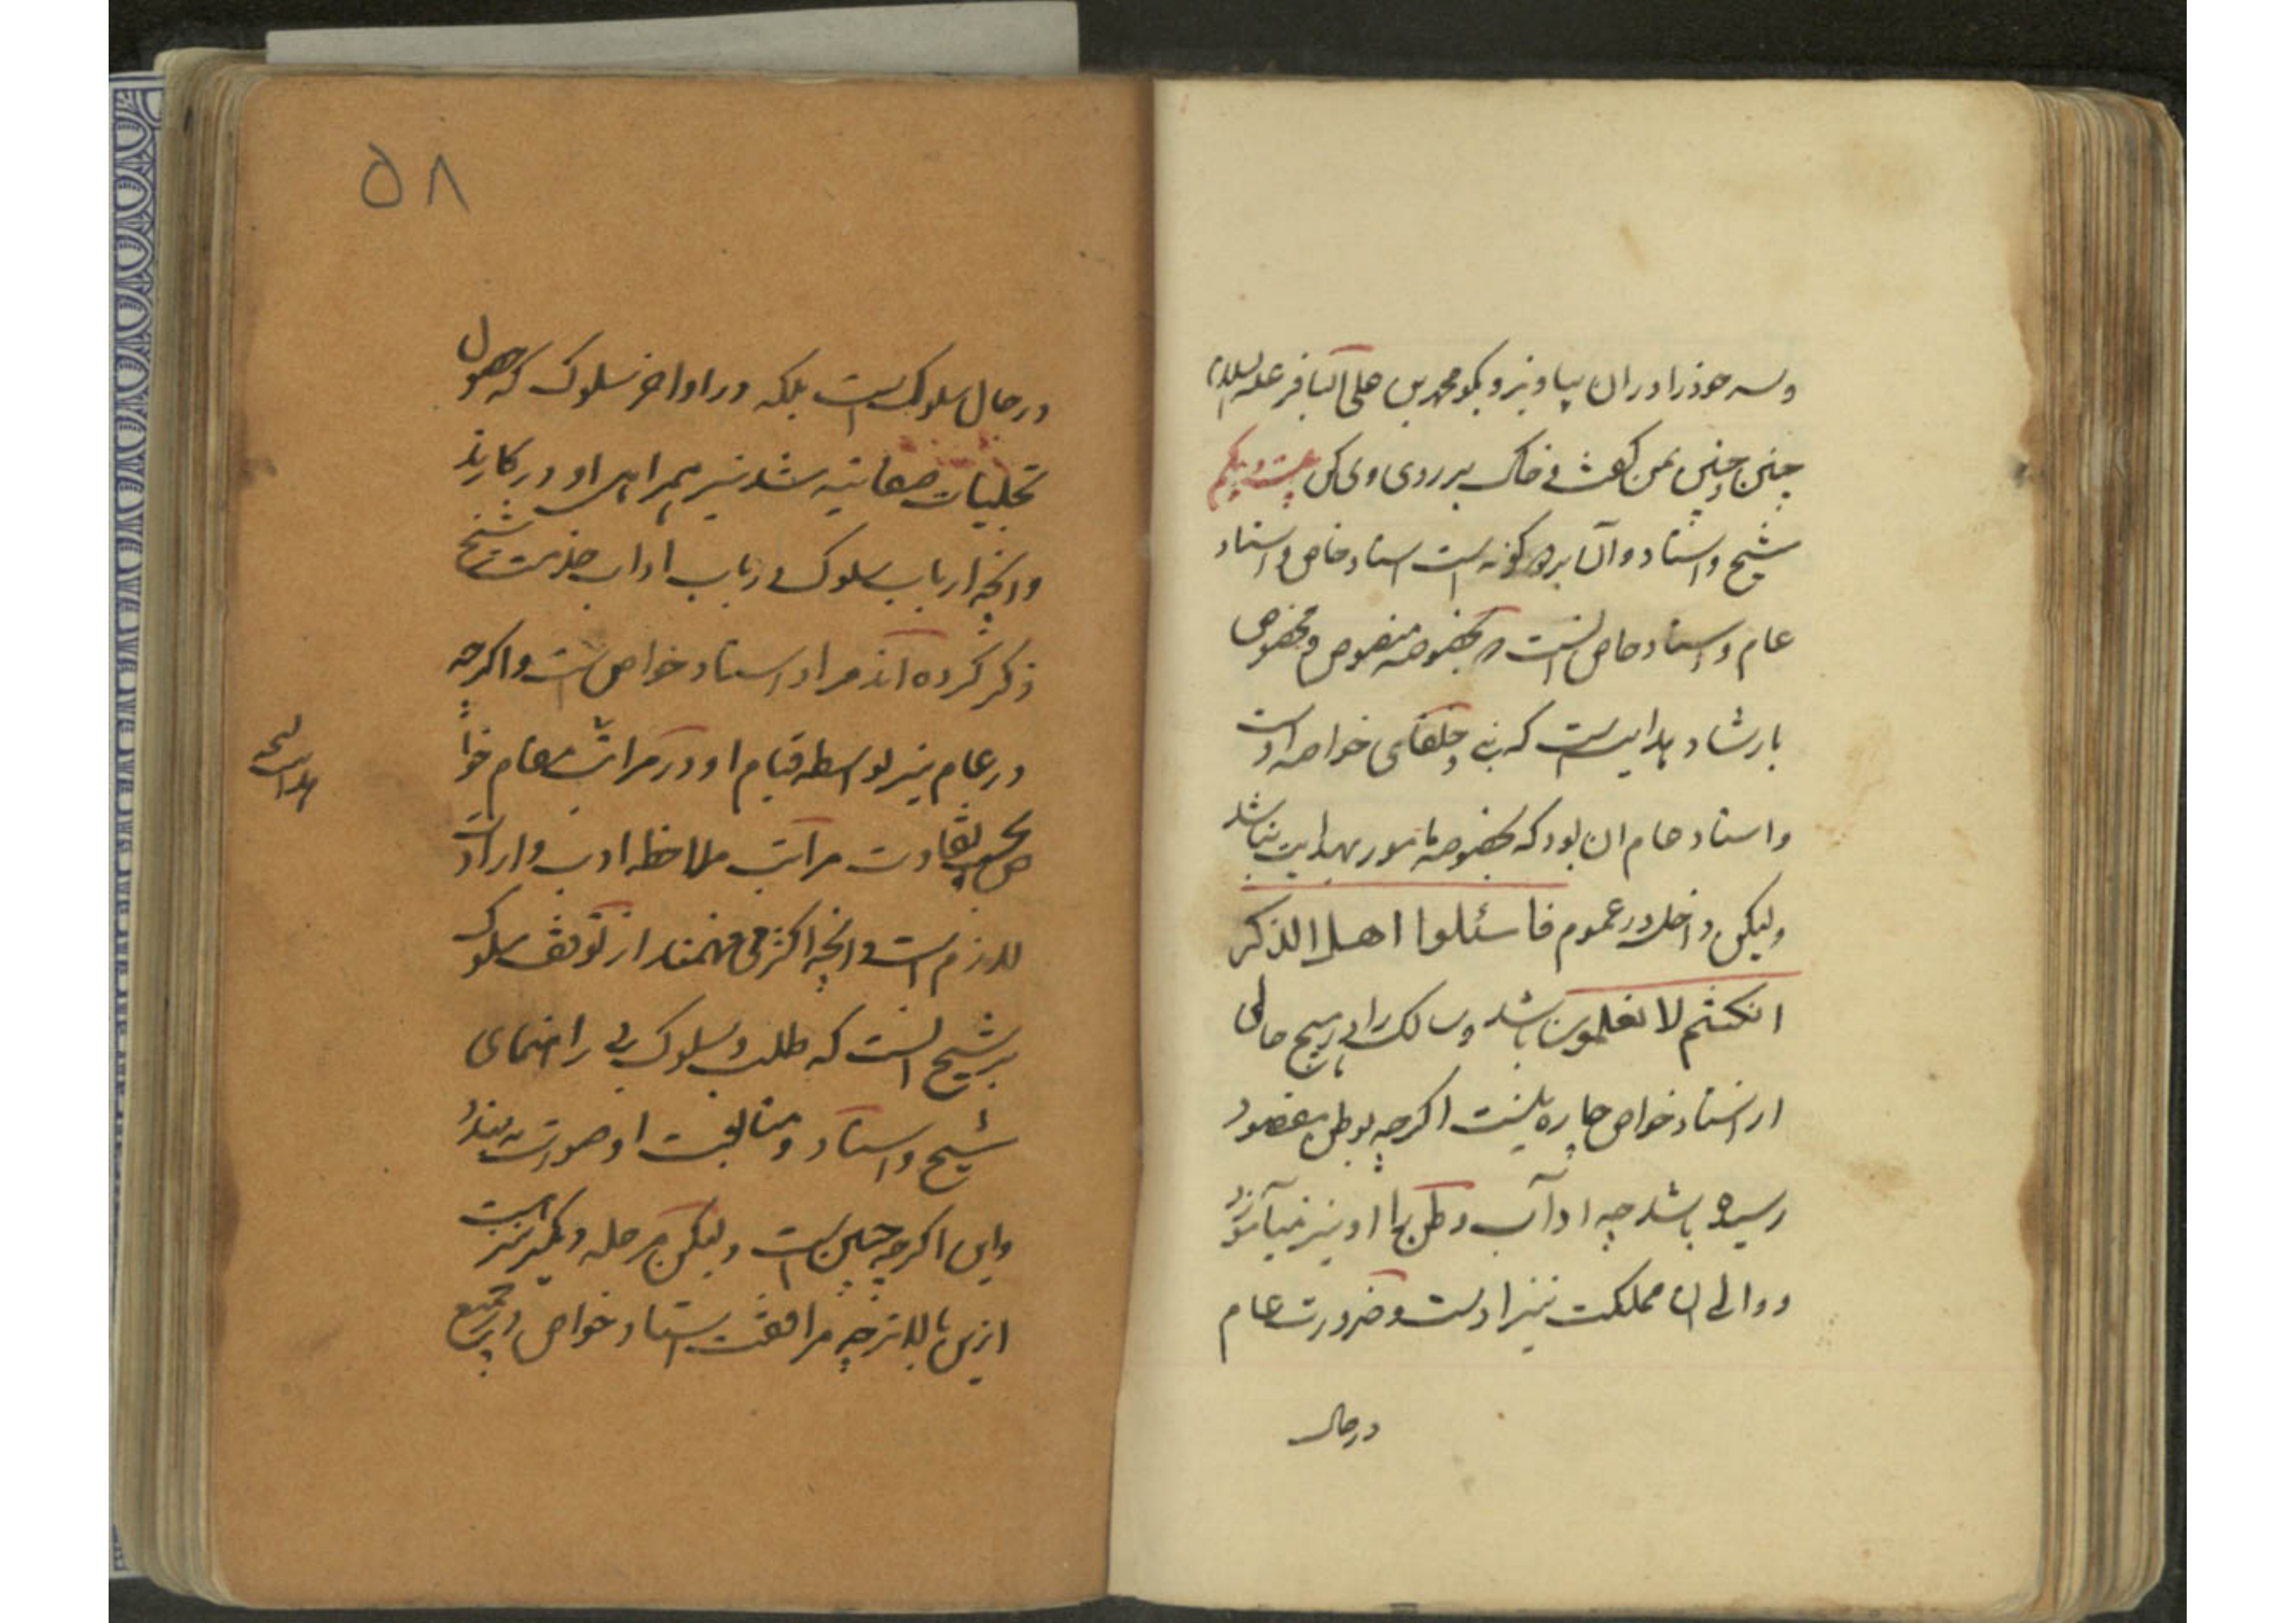 وسر خود را در ان بیاویز و بگو محمد بن علی الباقر علیه السلام
چنین و چنین بمن گفت و خاک بر روی وی کن بیست و یکم
شیخ و استاد و آن بر دو گونه است استاد خاص و استاد
عام و استاد خاص انست که بخصوصه منصوص و مخصوص
بارشاد و هدایت است که نبی و خلفای خواصه اوست
و استاد عام ان بود که بخصوصه مامور بهدایت نباشد
ولیکن داخل در عموم فاسئلوا اهل الذکر
انکنتم لا تعلمون باشد و سالک را در هیچ حالی
از استاد خواص چاره نیست اگرچه بوطن مقصود
رسیده باشد چه اداب وطن را او نیز میآموزد
و والی ان مملکت نیز اوست و ضرورت عام
در حال
۵۸
در حال سلوک است بلکه در اواخر سلوک که حصول
تجلیات صفاتیه شد نیز همراهی او در کار بد
و انچه ارباب سلوک در باب اداب خدمت شیخ
ذکر کرده اند مراد استاد خواص است و اگرچه
در عام نیز بواسطه قیام او در مراتب مقام خوا
ص بحسب تفاوت مراتب ملاحظه ادب و ارادت
لازم است و انچه اکثر می فهمند از توقف سلوک
بر شیخ انست که طلب و سلوک بی راهنمای
شیخ و استاد و متابعت او صورت نه بندد
و این اگرچه چنین است ولیکن مرحله دیگر نیز است
ازین بالاتر چه مرافقت استاد خواص در جمیع